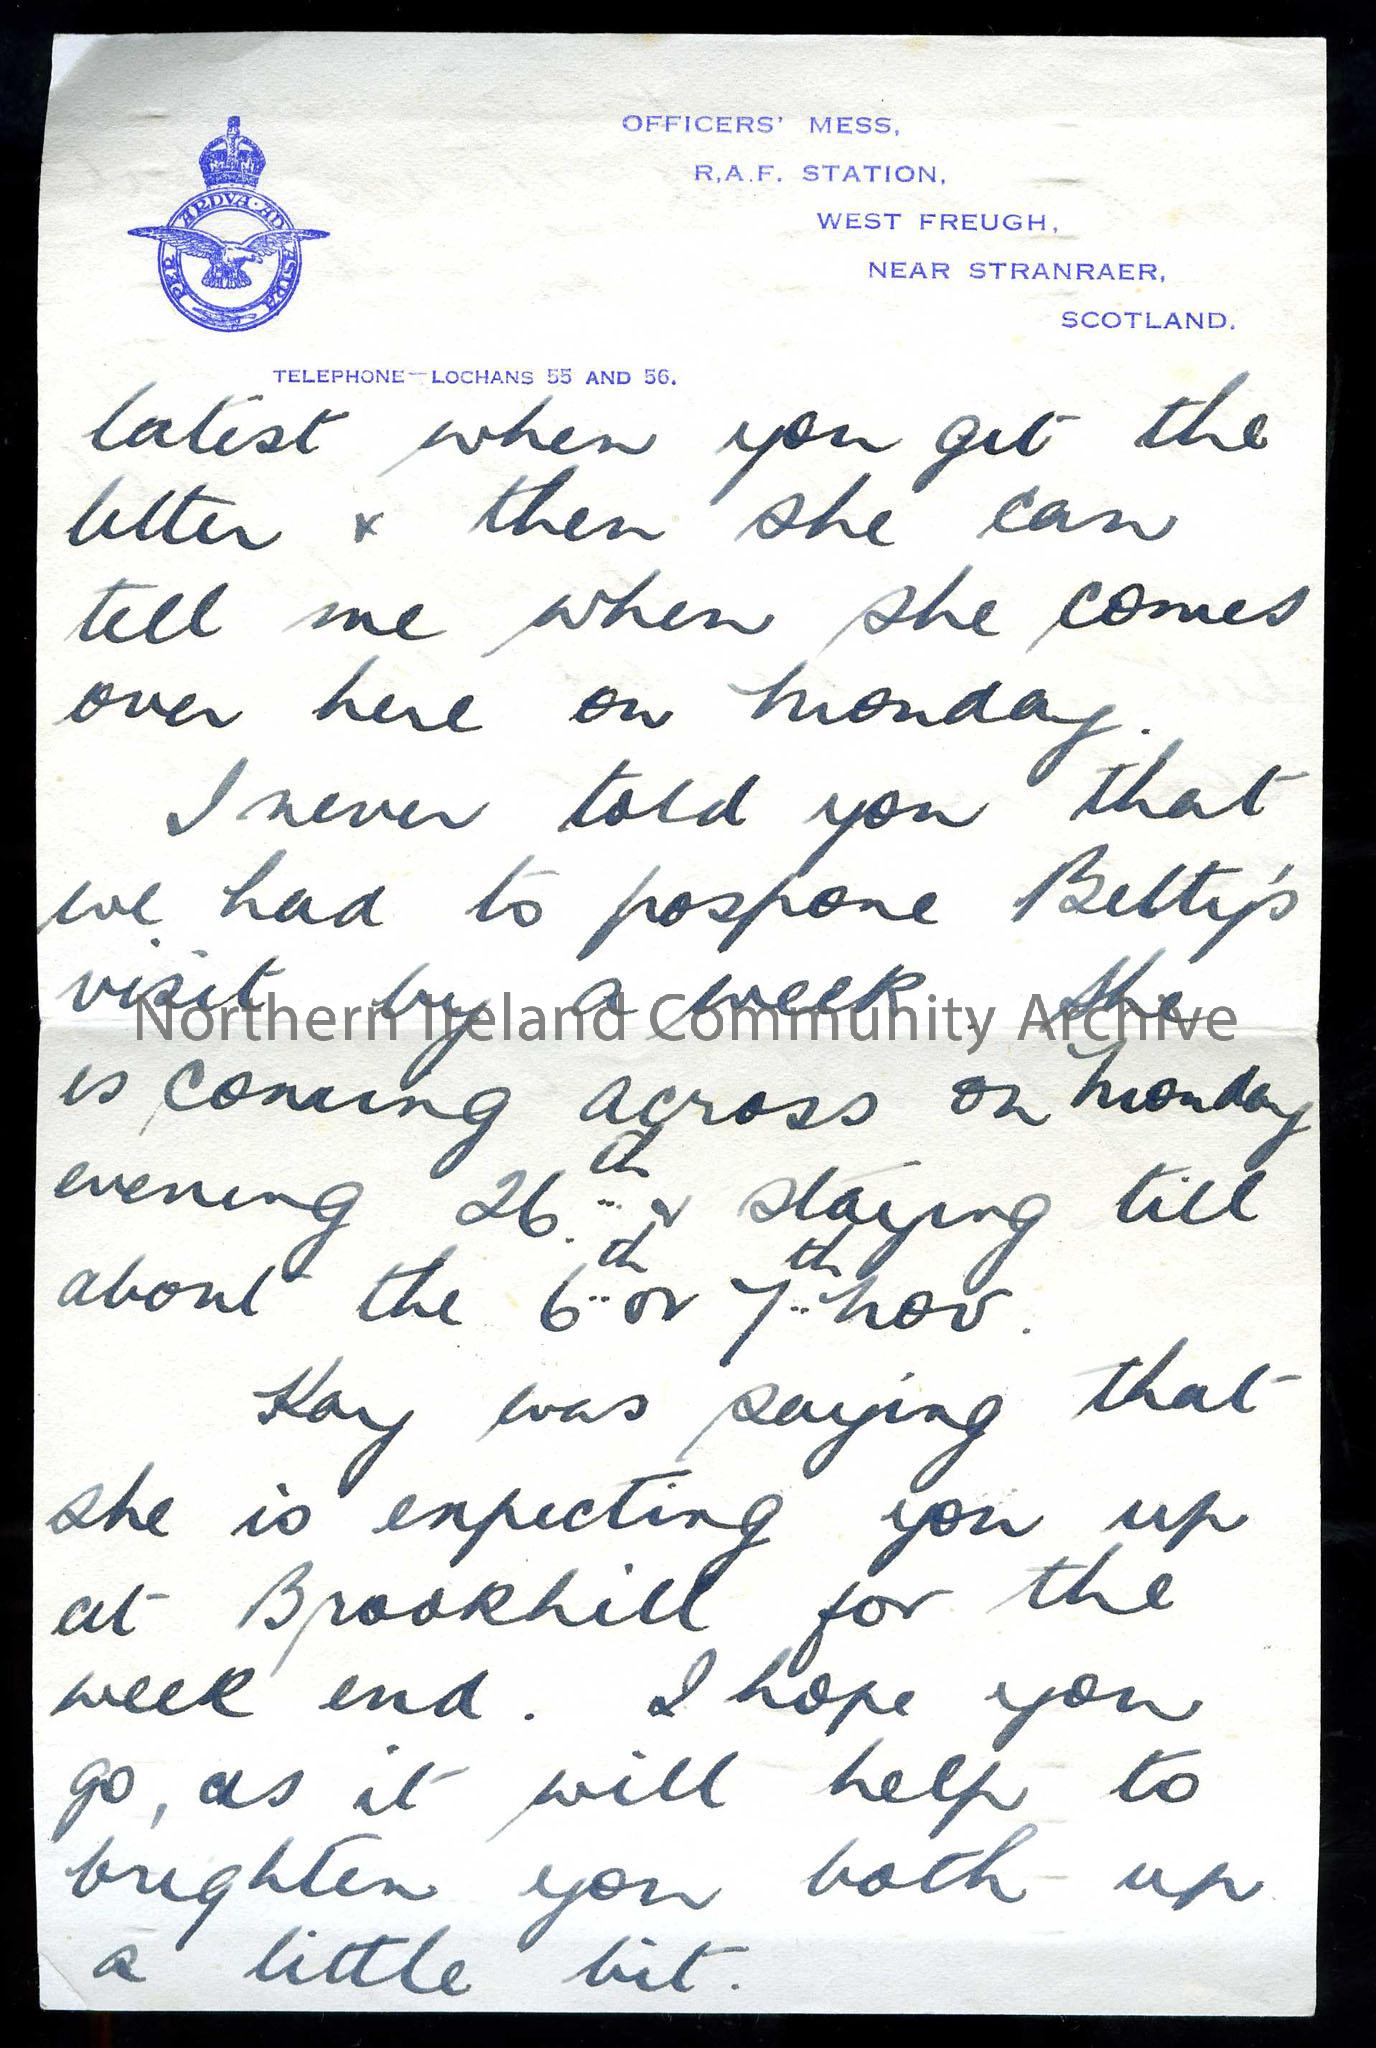 OFFICERS' MESS,
R.A.F. STATION,
WEST FREUGH,
NEAR STRANRAER,
SCOTLAND.
PER ARDVA AD ASTRA
TELEPHONE—LOCHANS 55 AND 56.
latest when you get the
letter & then she can
tell me when she comes
over here on Monday.
I never told you that
we had to pospone Betty's
visit by a week. She
Northern Ireland Community Archive
is coming across on Monday
evening 26th & staying till
about the 6th or 7th Nov.
Kay was saying that
she is expecting you up
at Brookhill for the
week end. I hope you
go, as it will help to
brighten you both up
a little bit.